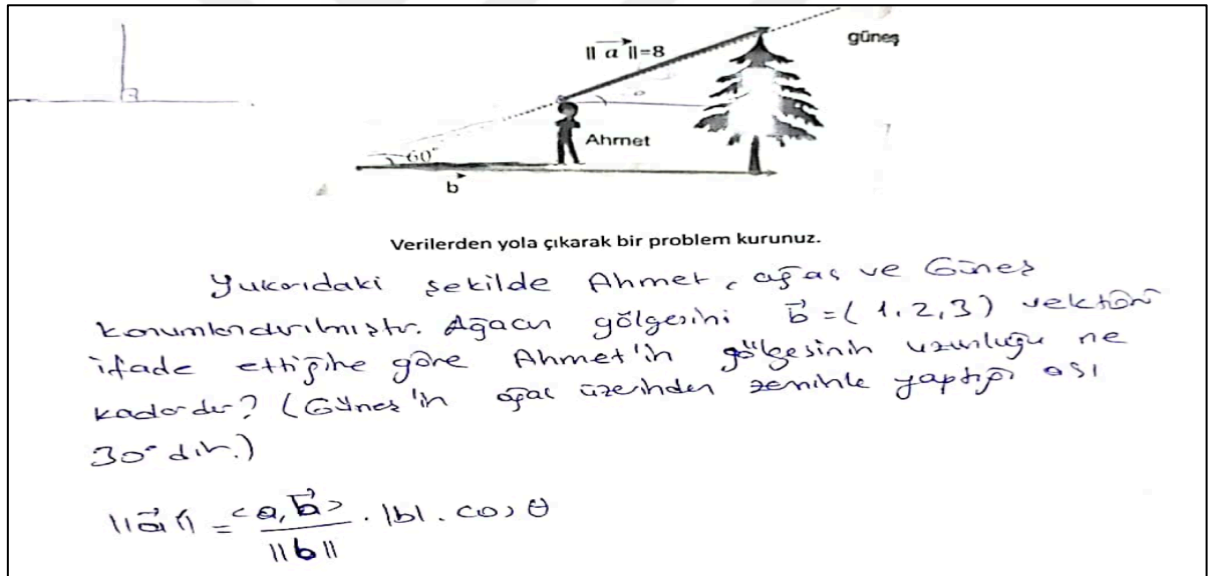 || a || = 8
güneş
Ahmet
60°
b
Verilerden yola çıkarak bir problem kurunuz.
Yukarıdaki şekilde Ahmet, ağaç ve Güneş
konumlandırılmıştır. Ağacın gölgesini b = (1,2,3) vektörü
ifade ettiğine göre Ahmet'in gölgesinin uzunluğu ne
kadardır? (Güneş'in ağaç üzerinden zeminle yaptığı açı
30° dir.)
||a|| = <a,b> / ||b|| . |b| . cos θ